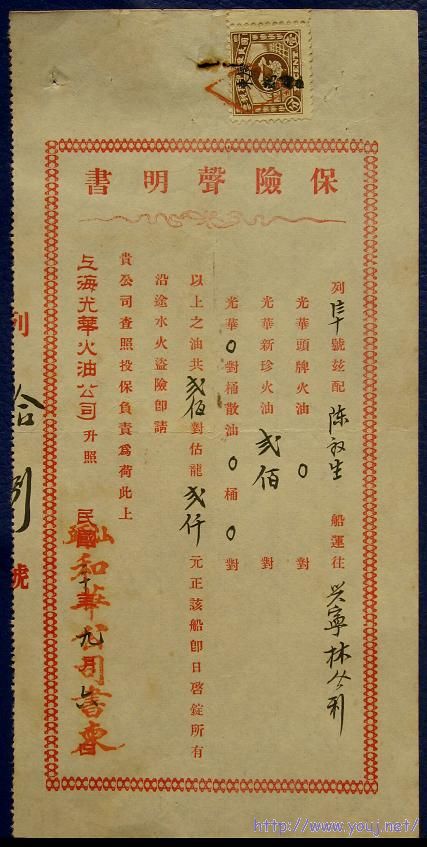 保險聲明書
列 號兹配 陈 生 船運往 兴寧林公利
光華頭牌火油 0 對
光華新珍火油 弍佰 對
光華 0 對桶散油 0 桶 0 對
以上之油共 弍佰 對估龍 弍仟 元正該船即日啓錠所有
沿途水火盜險卽請
貴公司查照投保負責爲荷此上
上海光華火油公司 升照
民國 年 九 月
汕頭 和華公司書柬
列 拾 號
http://www.youj.net/